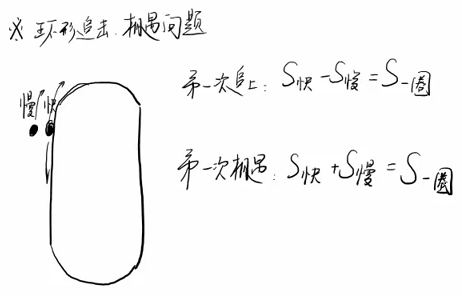 ※ 环形追击、相遇问题
慢 快
第一次追上：S快 - S慢 = S一圈
第一次相遇：S快 + S慢 = S一圈